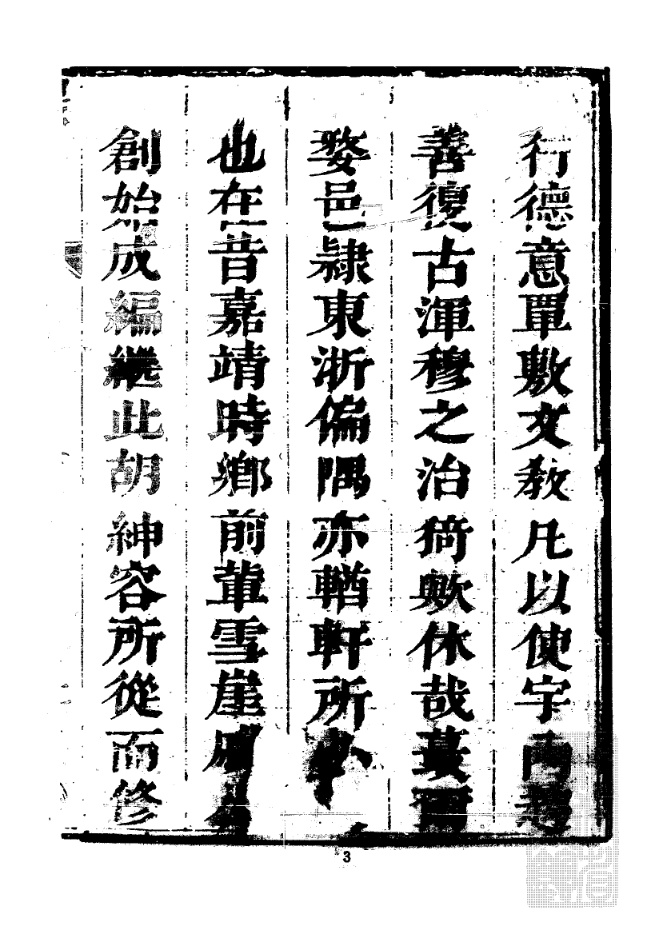 行德意覃敷文敎凡以使宇內趨
善復古渾穆之治猗歟休哉蕞爾
婺邑隷東浙偏隅亦輶軒所
也在昔嘉靖時鄉前輩雪崖
創始成編繼此胡紳容所從而修
3